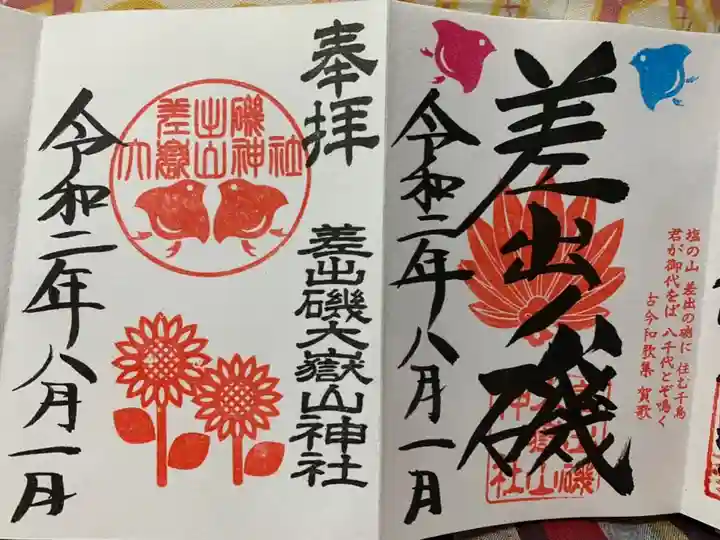 奉拝
差出磯大嶽山神社
差出磯
大嶽山神社
令和二年八月一日
差出ノ磯
塩の山 差出の磯に 住む千鳥
君が御代をば 八千代とぞ鳴く
古今和歌集 賀歌
令和二年八月一日